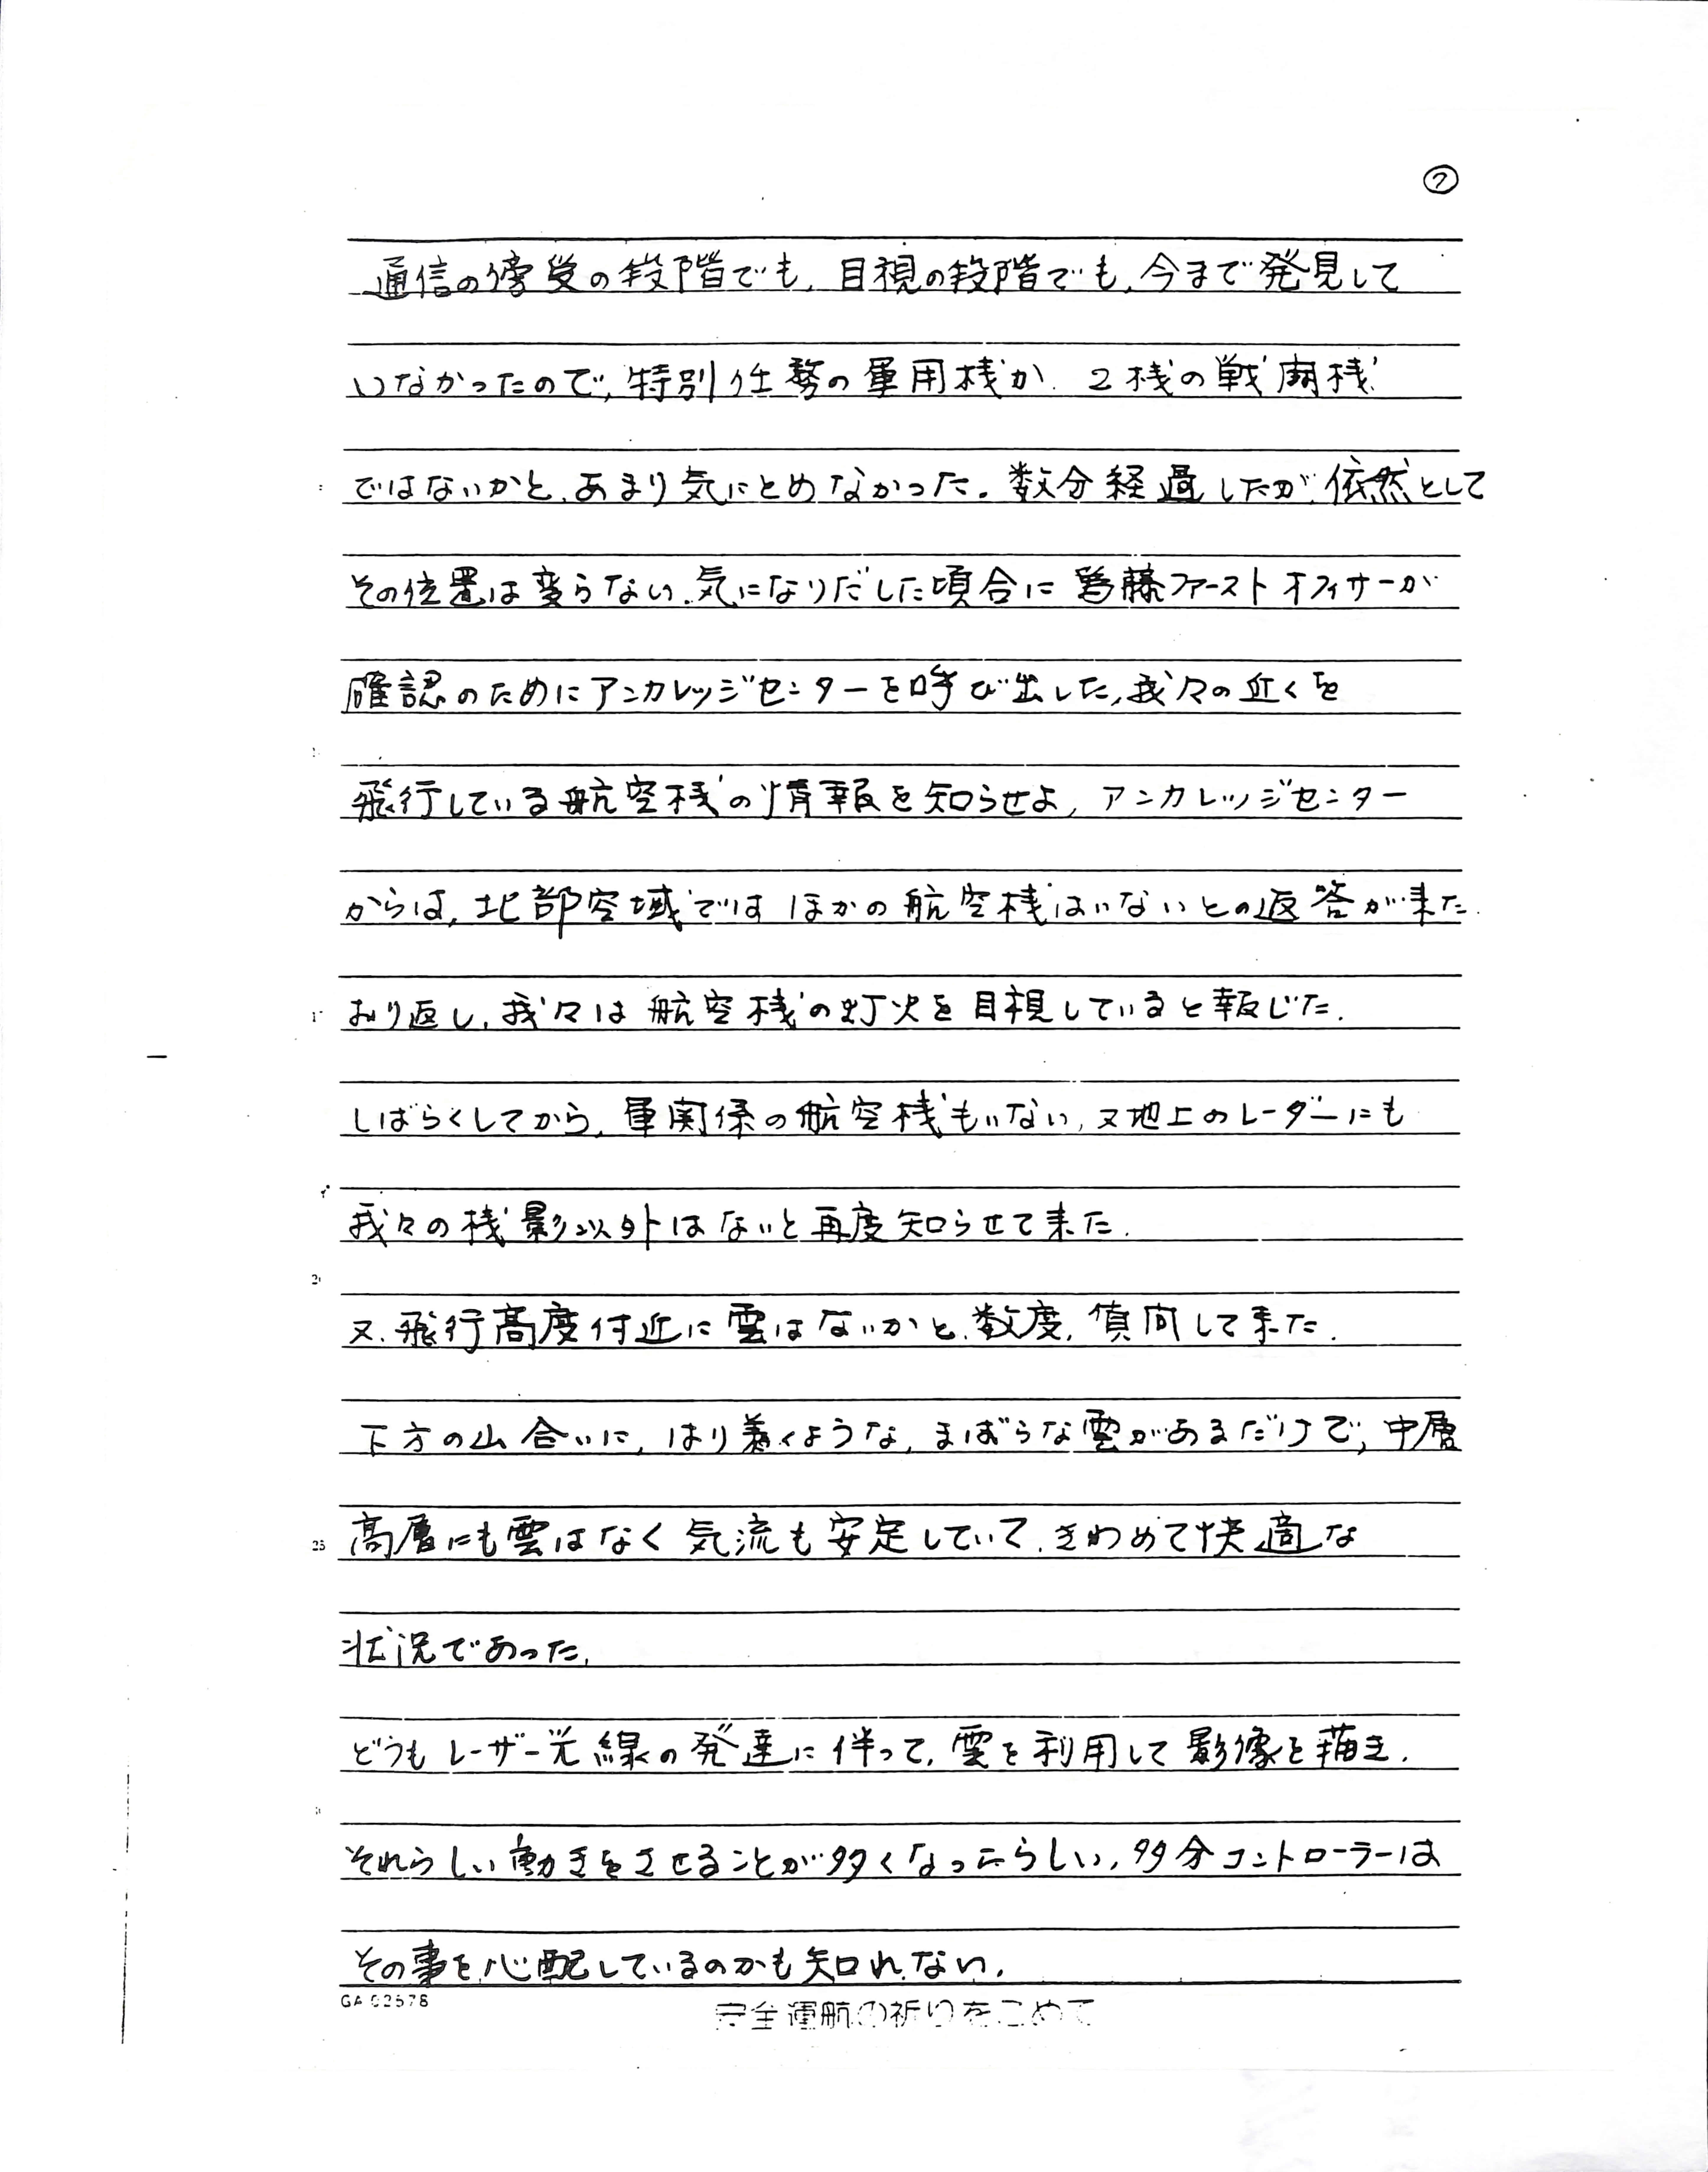 ⑦
通信の傍受の段階でも、目視の段階でも、今まで発見して
いなかったので、特別任務の軍用機か、2機の戦闘機
ではないかと、あまり気にとめなかった。数分経過したが、依然として
その位置は変らない、気になりだした頃合に 為藤ファーストオフィサーが
確認のためにアンカレッジセンターを呼び出した、我々の近くを
飛行している航空機の情報を知らせよ、アンカレッジセンター
からは、北部空域では ほかの航空機はいないとの返答が来た、
おり返し、我々は航空機の灯火を目視していると報じた、
しばらくしてから、軍関係の航空機もいない、又地上のレーダーにも
我々の機影以外はないと再度知らせて来た、
又、飛行高度付近に雲はないかと、数度、質問して来た、
下方の山合いに、はり着くような、まばらな雲があるだけで、中層
25 高層にも雲はなく 気流も安定していて、きわめて快適な
状況であった、
どうもレーザー光線の発達に伴って、雲を利用して影像を描き、
それらしい動きをさせることが多くなったらしい、多分コントローラーは
その事を心配しているのかも知れない、
GA 02578
安全運航の祈りをこめて